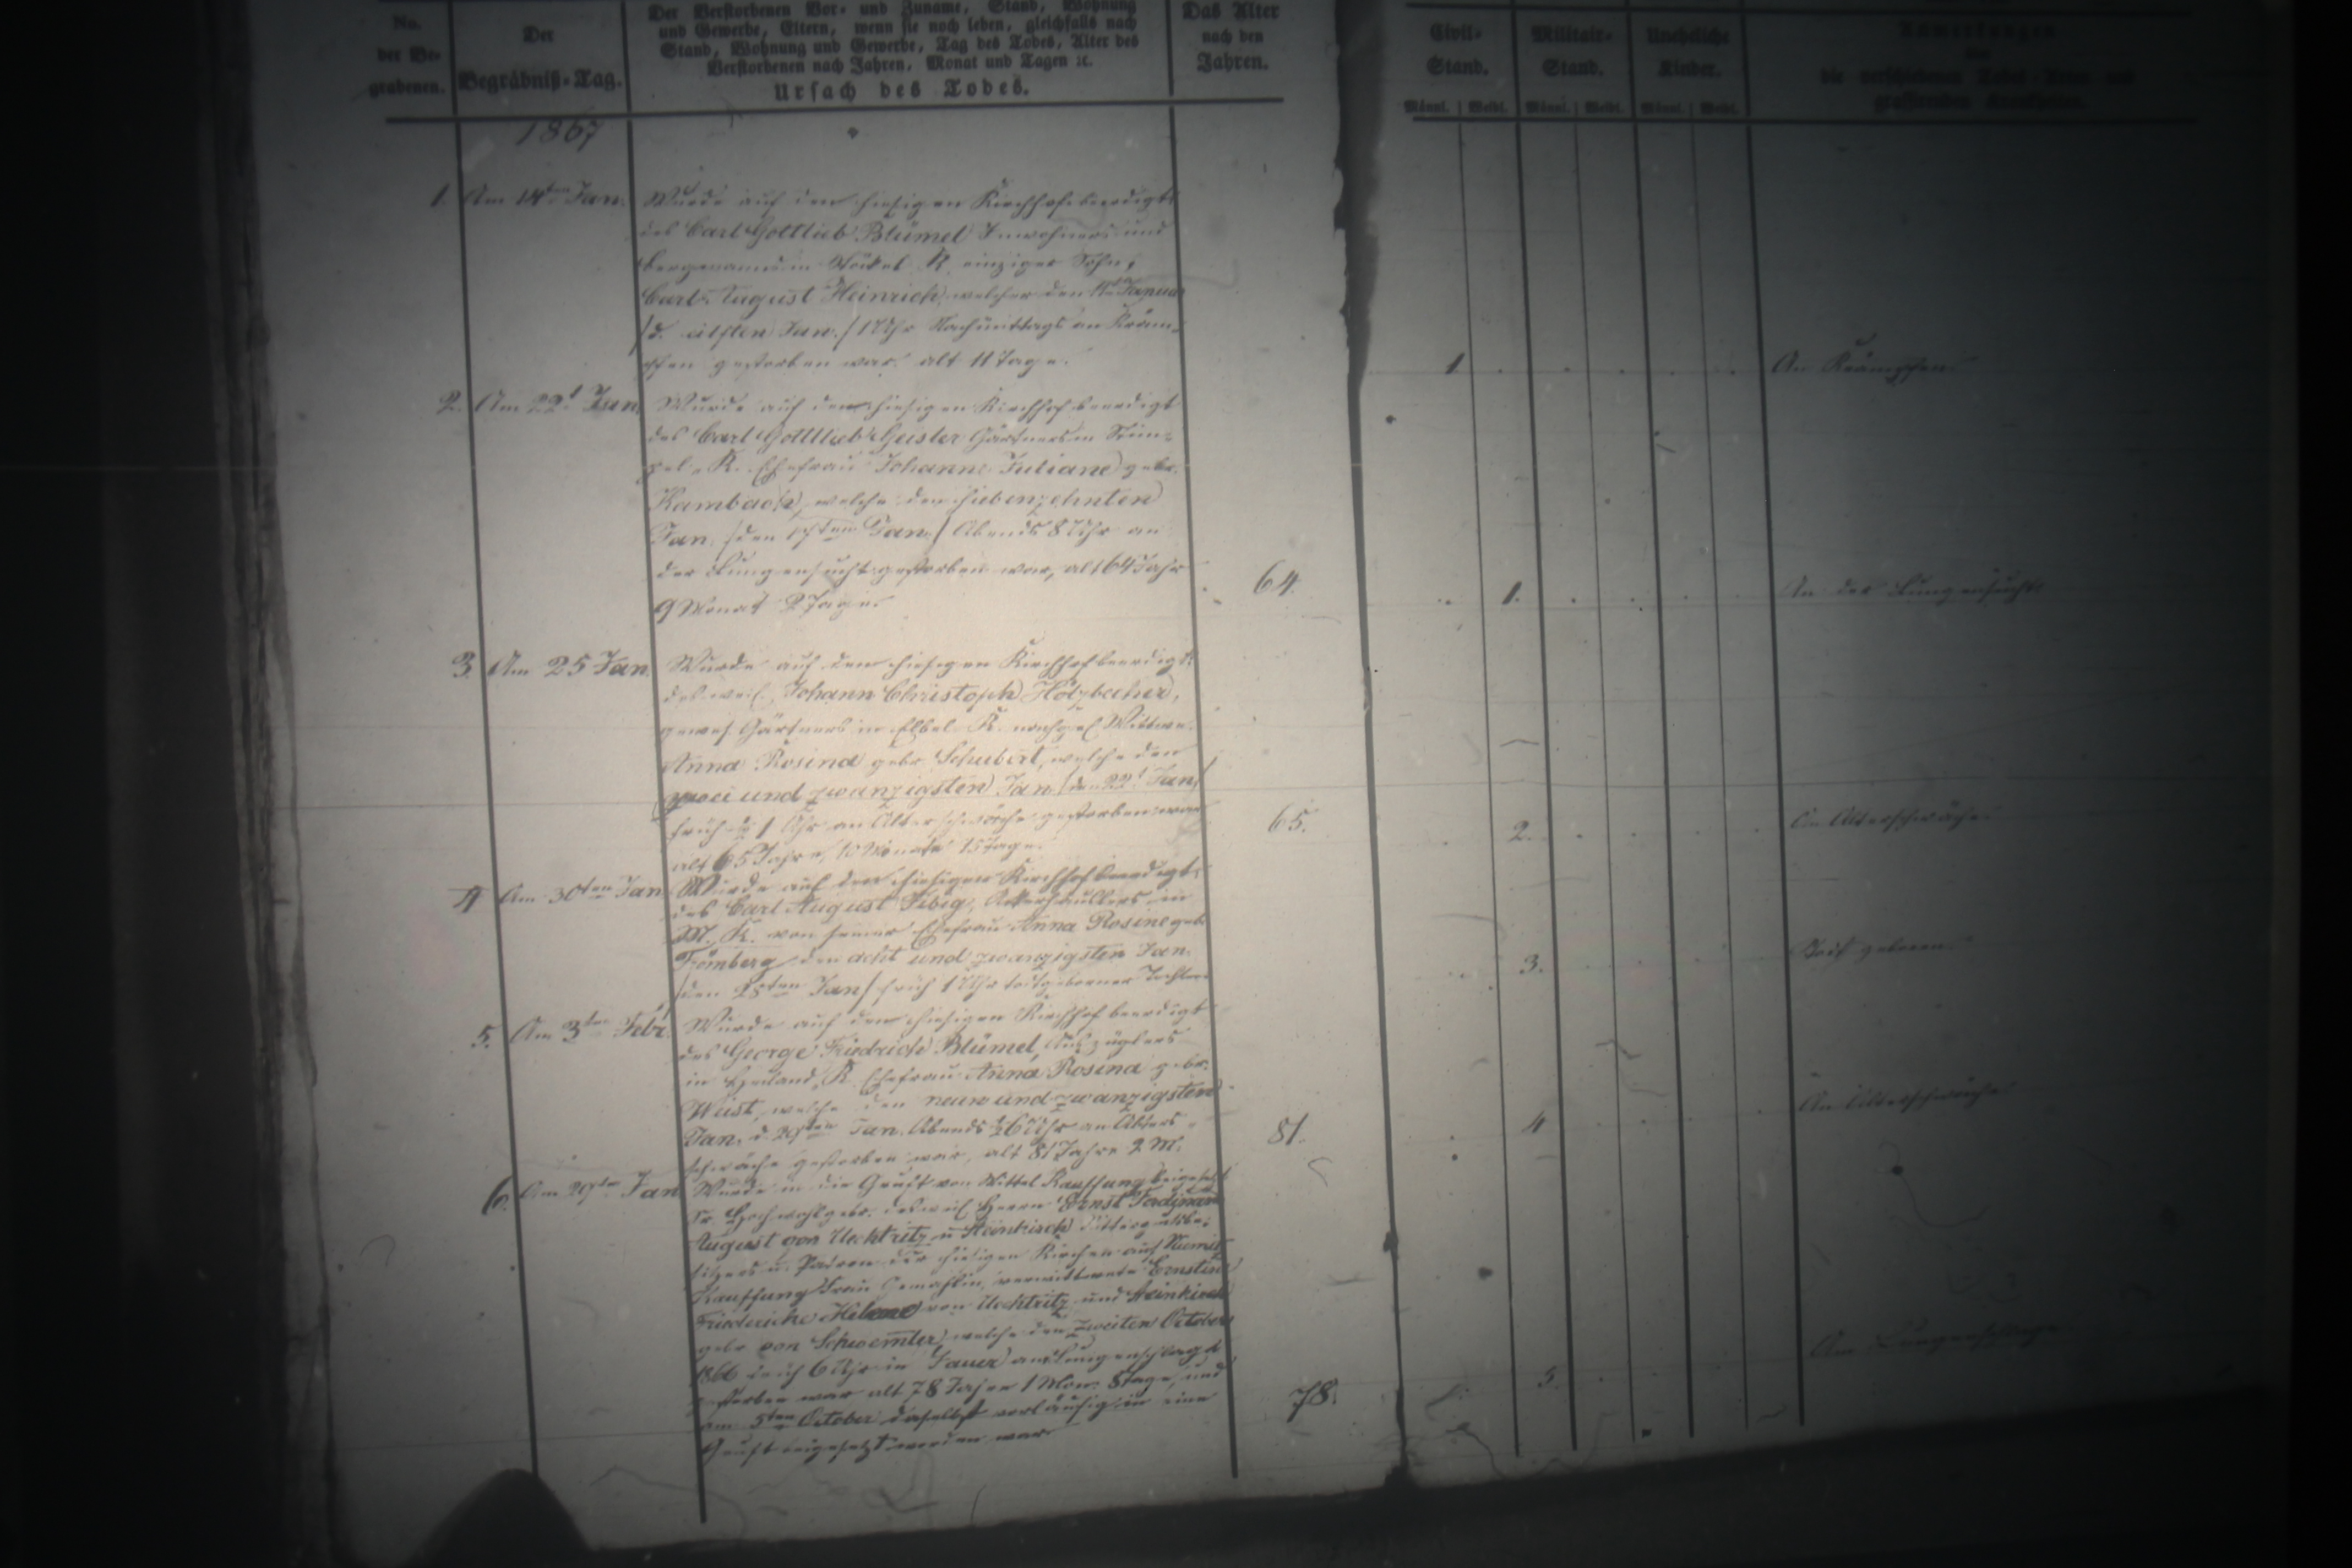 No.
der Be-
grabenen.
Der
Begräbniß-Tag.
Der Verstorbenen Vor- und Zuname, Stand, Wohnung
und Gewerbe, Eltern, wenn sie noch leben, gleichfalls nach
Stand, Wohnung und Gewerbe, Tag des Todes, Alter des
Verstorbenen nach Jahren, Monat und Tagen ꝛc.
Ursach des Todes.
Das Alter
nach den
Jahren.
Civil-
Stand.
Militair-
Stand.
Uneheliche
Kinder.
Anmerkungen
die verschiedenen Todes-Arten und
grassirenden Krankheiten.
Männl. Weibl. Männl. Weibl. Männl. Weibl.
1867
1. Am 14ten Jan. Wurde auf dem hiesigen Kirchhofe beerdigt
des Carl Gottlieb Blümel Inwohners und
in K. einziger Sohn,
Carl August Heinrich, welcher den 11ten Januar
/d. eilften Jan./ 1 Uhr Nachmittags an Kräm-
pfen gestorben war. alt 11 Tage.
1 An Krämpfen
2. Am 22t Jan. Wurde auf dem hiesigen Kirchhof beerdigt
des Carl Gottlieb Geisler Gärtners in
K. Ehefrau Johanne Juliane geb.
Kambach, welche den siebenzehnten
Jan. /den 17ten Jan./ Abends 8 Uhr an
der Lungensucht gestorben war, alt 64 Jahr
9 Monat 2 Tage.
64. 1. An der Lungensucht
3. Am 25 Jan. Wurde auf dem hiesigen Kirchhof beerdigt
des weil. Johann Christoph Hölzbecher,
gewes. Gärtners in K. nachgel. Wittwe
Anna Rosina geb. Schubert, welche den
zwei und zwanzigsten Jan. /den 22t Jan./
früh 1 Uhr an Altersschwäche gestorben war
alt 65 Jahre, 10 Monate 15 Tage.
65. 2. An Altersschwäche
4 Am 30ten Jan. Wurde auf dem hiesigen Kirchhof beerdigt
des Carl August in
M. K. von seiner Ehefrau Anna Rosine geb.
Frömberg den acht und zwanzigsten Jan.
/den 28ten Jan/ früh 1 Uhr todtgeborener Tochter
3. Todt geboren
5. Am 3ten Febr. Wurde auf dem hiesigen Kirchhof beerdigt
des George Friedrich Blümel, Auszüglers
in K. Ehefrau Anna Rosina geb.
Weist, welche den neun und zwanzigsten
Jan. d. 29ten Jan. Abends ½6 Uhr an Alters-
schwäche gestorben war, alt 81 Jahre 2 M.
81. 4 An Altersschwäche
6. Am 29ten Jan Wurde in die Gruft von Mittel Kauffung beigesetzt
Sr. Hochwohlgeb. des weil. Herrn Ernst Ferdinand
August von Uechtritz u Steinkirch Rittergutsbe-
sitzers u. Patron der hiesigen Kirchen auf
Kauffung Frau Gemahlin, verwittwete Ernstine
Friedericke Helene von Uechtritz und Steinkirch
geb. von welche den zweiten October
1866 früh 6 Uhr in Jauer am Lungenschlage
gestorben war alt 78 Jahre 1 Mon. 8 Tage, und
am 5ten October daselbst vorläufig in eine
Gruft beigesetzt worden war
78. 5. Am Lungenschlage